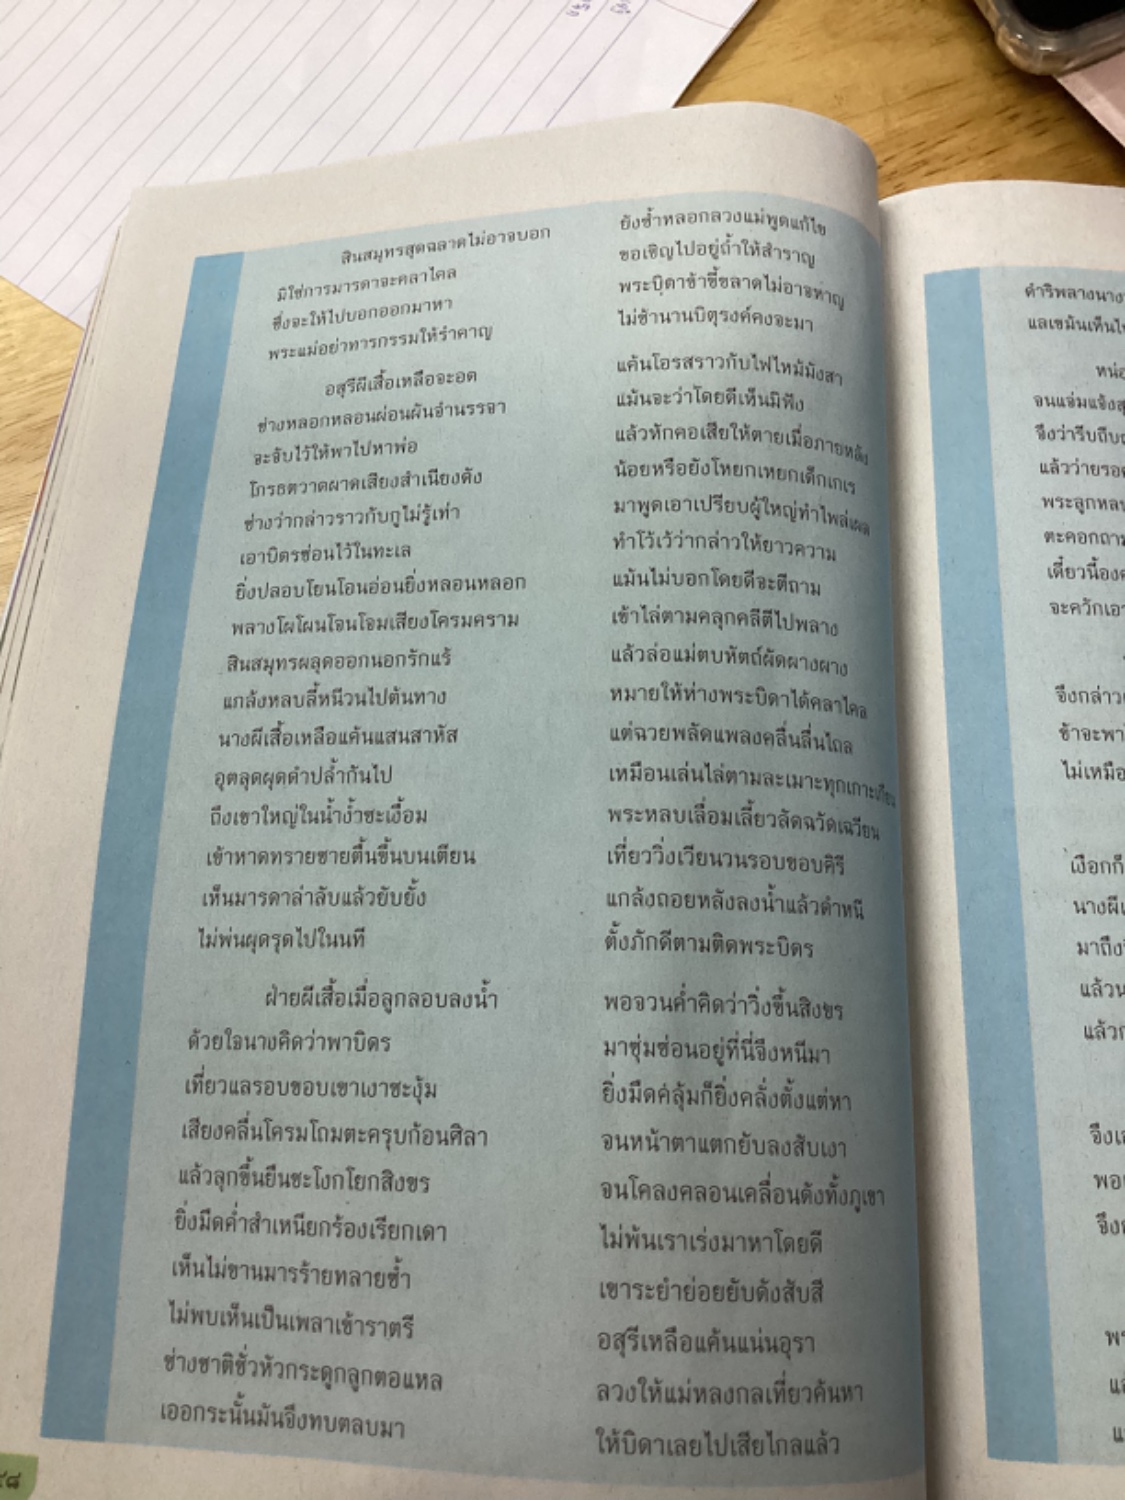 สินสมุทรสุดฉลาดไม่อาจบอก ยังซ้ำหลอกลวงแม่พูดแก้ไข
มิใช่การมารดาจะคลาไคล ขอเชิญไปอยู่ถ้ำให้สำราญ
ซึ่งจะให้ไปบอกออกมาหา พระบิดาข้าขี้ขลาดไม่อาจหาญ
พระแม่อย่าทารกรรมให้รำคาญ ไม่ช้านานบิตุรงค์คงจะมา
อสุรีผีเสื้อเหลือจะอด แค้นโอรสราวกับไฟไหม้มังสา
ช่างหลอกหลอนผ่อนผันจำนรรจา แม้นจะว่าโดยดีเห็นมิฟัง
จะจับไว้ให้พาไปหาพ่อ แล้วหักคอเสียให้ตายเมื่อภายหลัง
โกรธตวาดผาดเสียงสำเนียงดัง น้อยหรือยังโหยกเหยกเด็กเกเร
ช่างว่ากล่าวราวกับกูไม่รู้เท่า มาพูดเอาเปรียบผู้ใหญ่ทำไพล่เผล
เอาบิตรซ่อนไว้ในทะเล ทำโว้เว้ว่ากล่าวให้ยาวความ
ยิ่งปลอบโยนโอนอ่อนยิ่งหลอนหลอก แม้นไม่บอกโดยดีจะตีถาม
พลางโผโผนโจนโจมเสียงโครมคราม เข้าไล่ตามคลุกคลีตีไปพลาง
สินสมุทรผลุดออกนอกรักแร้ แล้วล่อแม่ตบหัตถ์ผัดผางผาง
แกล้งหลบลี้หนีวนไปต้นทาง หมายให้ห่างพระบิดาได้คลาไคล
นางผีเสื้อเหลือแค้นแสนสาหัส แต่ฉวยพลัดแพลงคลื่นลื่นไถล
อุตลุดผุดดำปล้ำกันไป เหมือนเล่นไล่ตามละเมาะทุกเกาะเกียน
ถึงเขาใหญ่ในน้ำง้ำชะเงื้อม พระหลบเลื่อมเลี้ยวลัดฉวัดเฉวียน
เข้าหาดทรายชายตื้นขึ้นบนเตียน เที่ยววิ่งเวียนวนรอบขอบคิรี
เห็นมารดาล่าลับแล้วยับยั้ง แกล้งถอยหลังลงน้ำแล้วดำหนี
ไม่พ่นผุดรุดไปในนที ตั้งภักดีตามติดพระบิตร
ฝ่ายผีเสื้อเมื่อลูกลอบลงน้ำ พอจวนค่ำคิดว่าวิ่งขึ้นสิงขร
ด้วยใจนางคิดว่าพาบิดร มาซุ่มซ่อนอยู่ที่นี่จึงหนีมา
เที่ยวแลรอบขอบเขาเงาชะงุ้ม ยิ่งมืดคลุ้มก็ยิ่งคลั่งตั้งแต่หา
เสียงคลื่นโครมโถมตะครุบก้อนศิลา จนหน้าตาแตกยับลงสับเงา
แล้วลุกขึ้นยืนชะโงกโยกสิงขร จนโคลงคลอนเคลื่อนดังทั้งภูเขา
ยิ่งมืดค่ำสำเหนียกร้องเรียกเดา ไม่พ้นเราเร่งมาหาโดยดี
เห็นไม่ขานมารร้ายทลายซ้ำ เขาระยำย่อยยับดังสับสี
ไม่พบเห็นเป็นเพลาเข้าราตรี อสุรีเหลือแค้นแน่นอุรา
ช่างชาติชั่วหัวกระดูกลูกตอแหล ลวงให้แม่หลงกลเที่ยวค้นหา
เออกระนั้นมันจึงทบตลบมา ให้บิดาเลยไปเสียไกลแล้ว
ดำริพลางนาง
หน่อ
จนแจ่มแจ้ง
จึงว่ารีบ
แล้วว่ายรอด
พระลูก
ตะคอกถาม
เดี๋ยวนี้
จะควัก
จึงกล่าว
ข้าจะพา
ไม่เหมือน
เงือกก็
นางผี
มาถึง
แล้ว
แล้ว